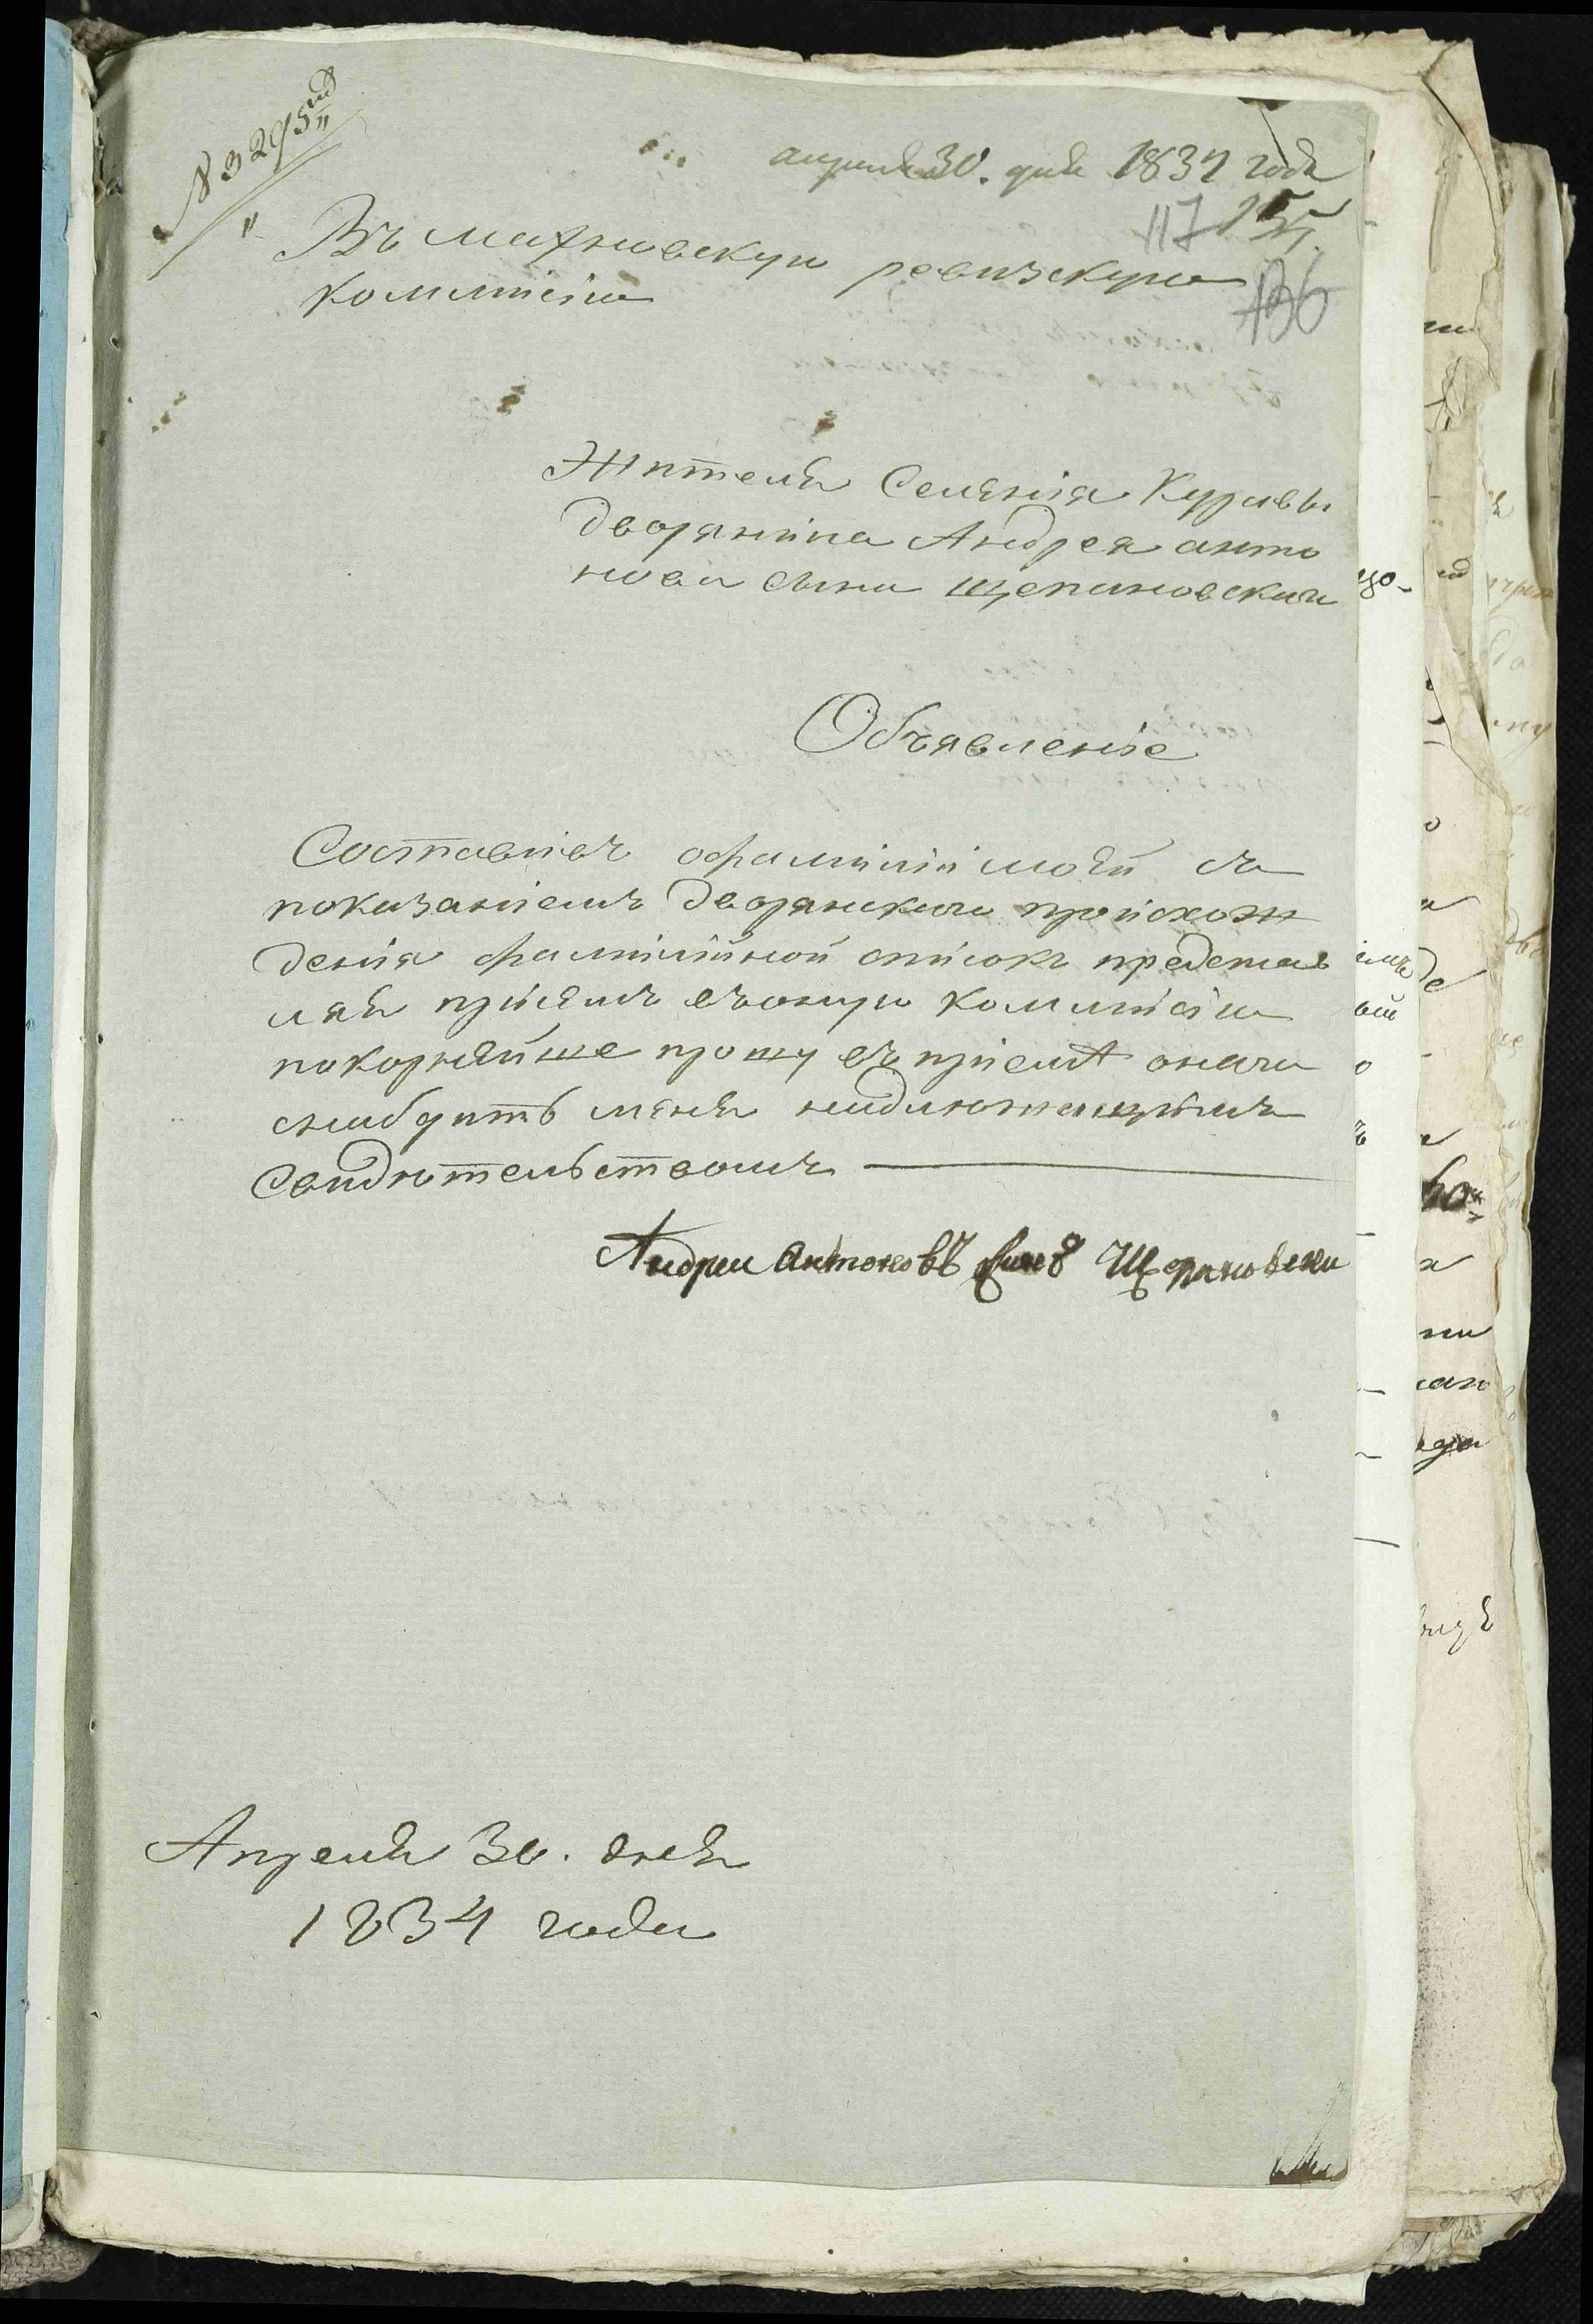 N 3295
апреля 30. дня 1834 года
117
136
Въ махновскую ревизскую
коммисію
Жителя Селенія Куравы
дворянина Андрея анто
нова сына щепановскаго
Объявленіе
Составивъ о фамиліи моей съ
показаніемъ дворянскаго происхож
денія фамилійной списокъ представ
ляя при семъ въ оную коммисію
покорнейше прошу въ приемѣ онаго
снабдить меня надлежащимъ
свидетельствомъ
Андреи антоновъ сынъ Щепановски
Апреля 30. дня
1834 года